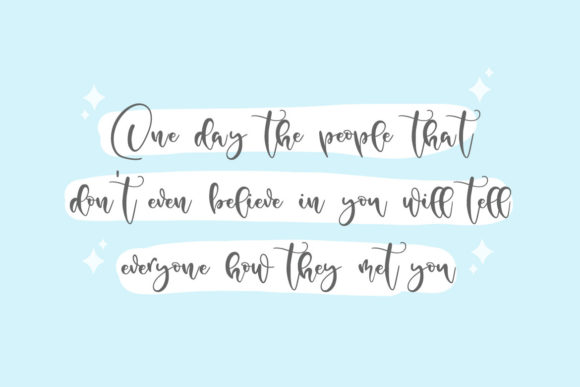 One day the people that
don't even believe in you will tell
everyone how they met you